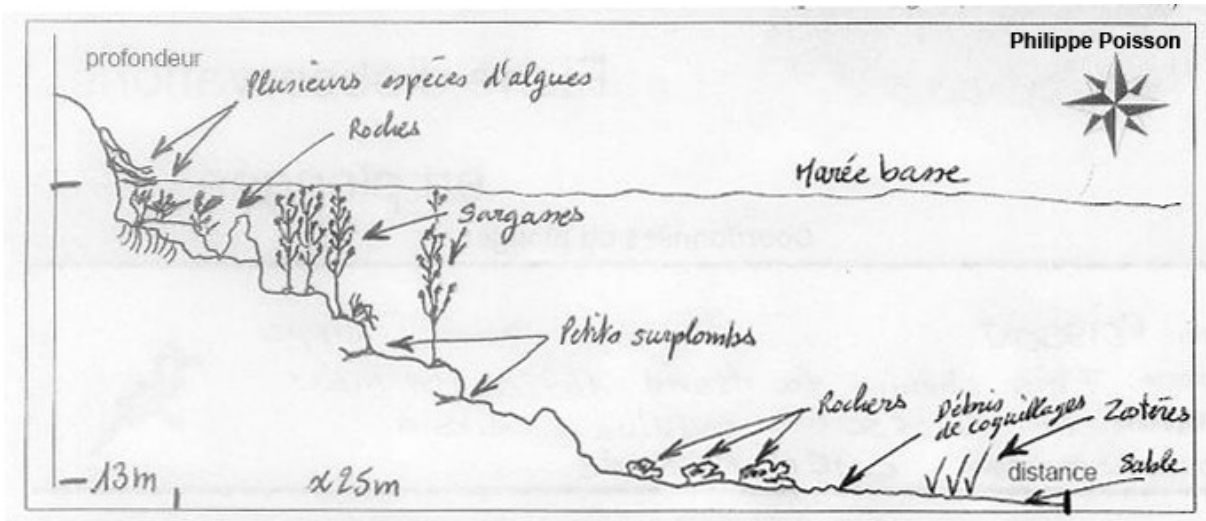 Philippe Poisson
profondeur
Plusieurs espèces d'algues
Roches
Marée basse
Sargasses
Petits surplombs
Rochers
Débris
de coquillages
Zostères
distance
Sable
-13m
∝25m